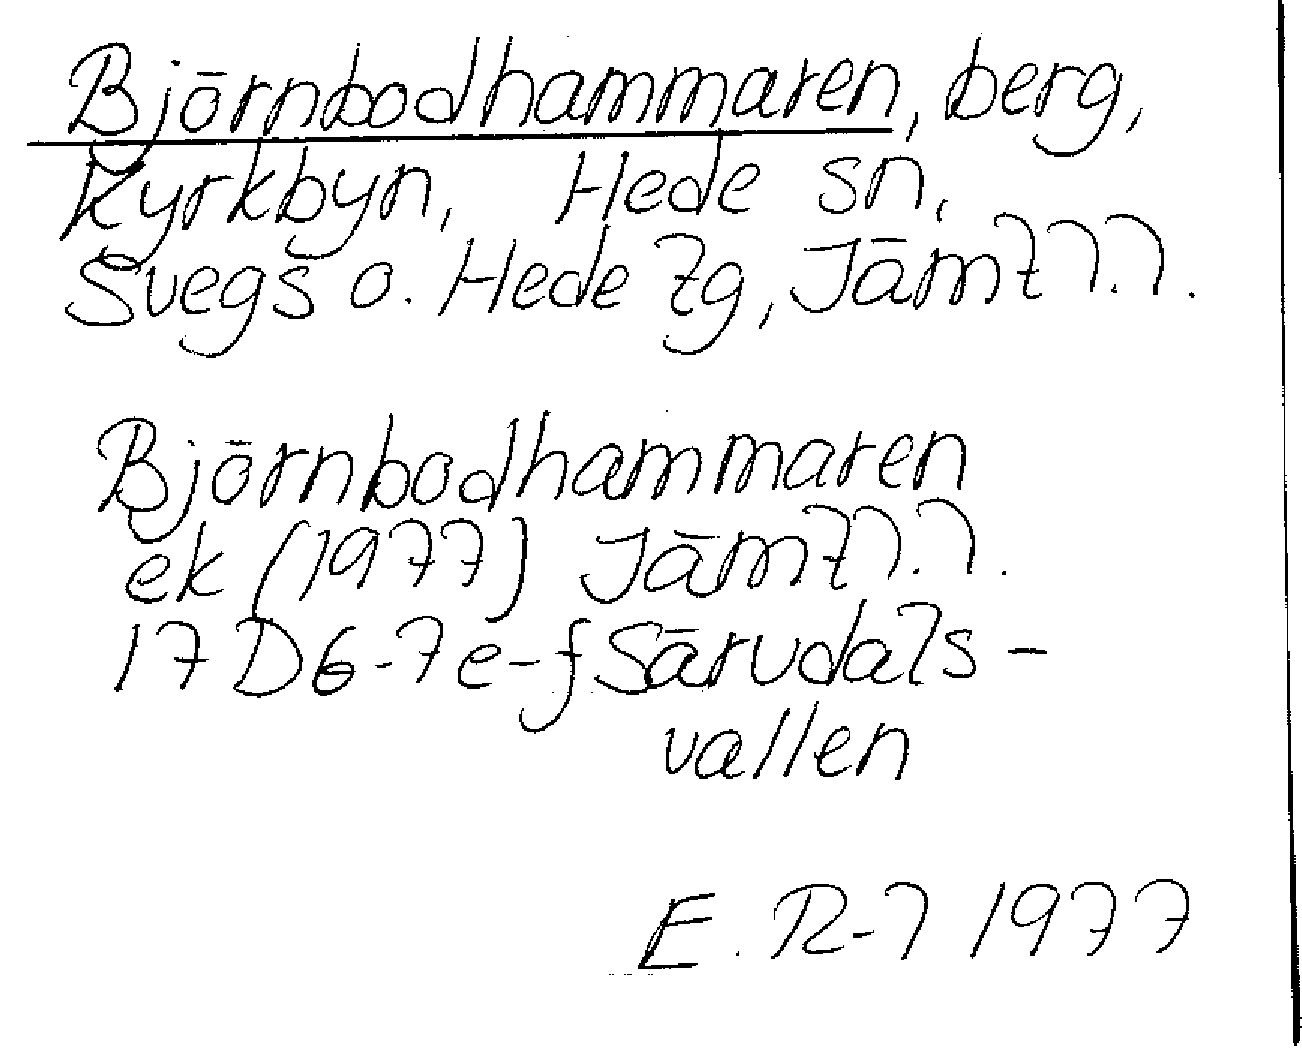 Björnbodhammaren, berg,
Kyrkbyn, Hede sn,
Svegs o. Hede tg, Jämtl.l.
Björnbodhammaren
ek (1977) Jämtl.l.
17 D6-7e-f Särvdals-
vallen
E. R-l 1977